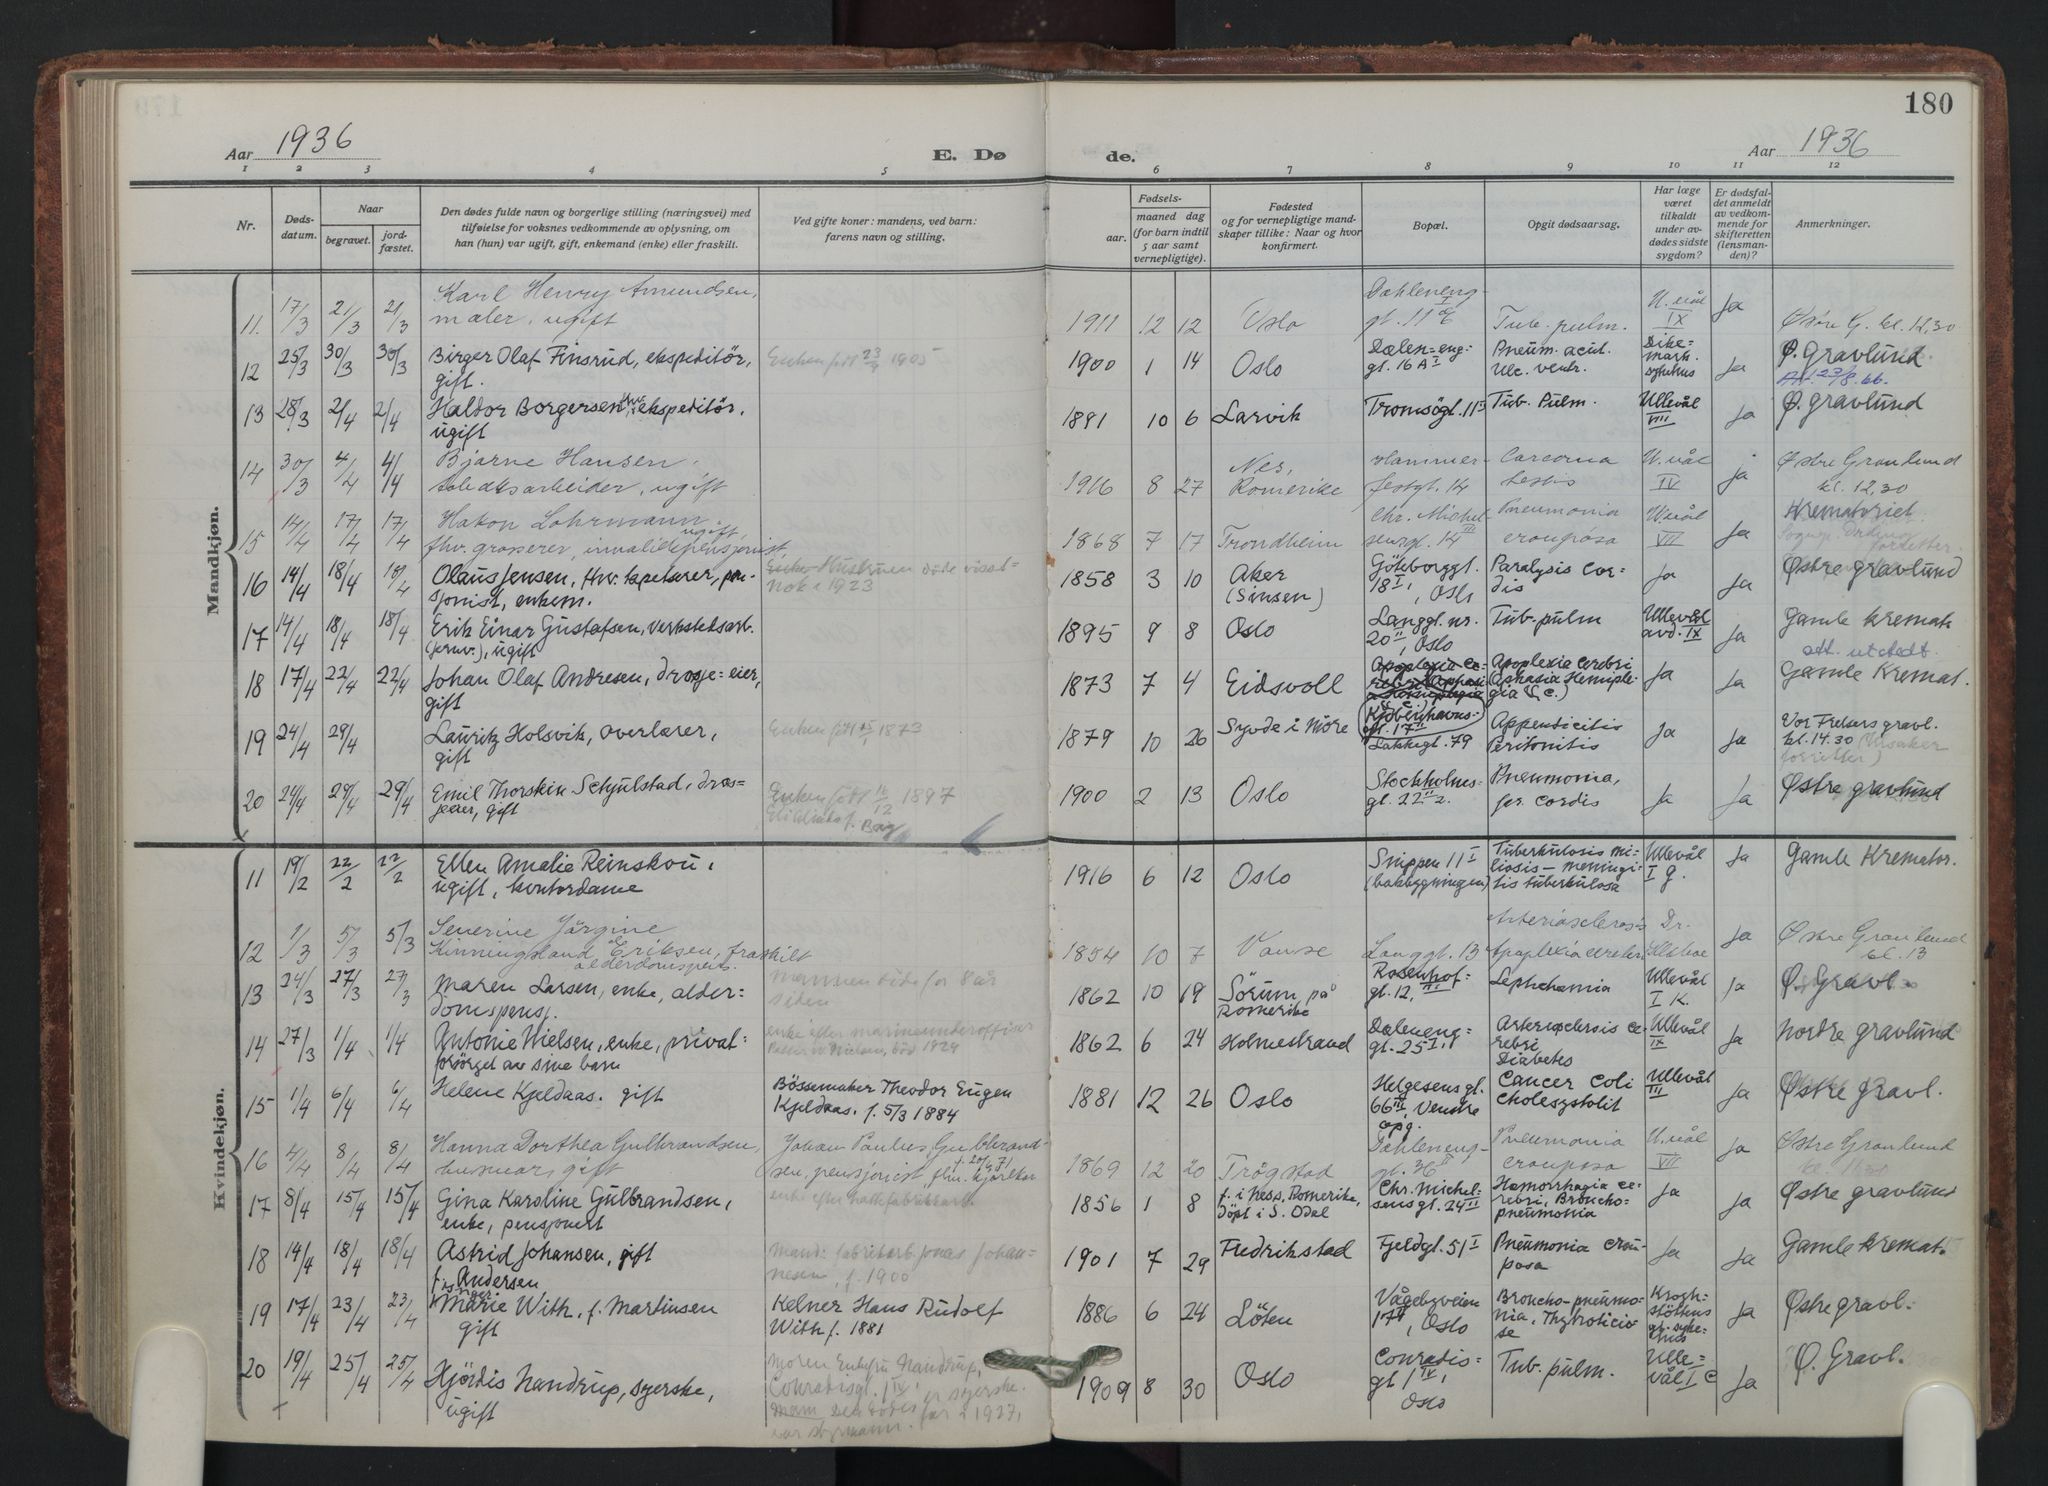 180
Aar 1936
E. Dø
de.
Aar 1936
1 2 3 4 5 6 7 8 9 10 11 12
Nr.
Døds-
datum.
Naar
begravet.
jord-
fæstet.
Den dødes fulde navn og borgerlige stilling (næringsvei) med
tilføielse for voksnes vedkommende av oplysning, om
han (hun) var ugift, gift, enkemand (enke) eller fraskilt.
Ved gifte koner: mandens, ved barn:
farens navn og stilling.
Fødsels-
aar.
maaned dag
(for barn indtil
5 aar samt
vernepligtige).
Fødested
og for vernepligtige mand-
skaper tillike: Naar og hvor
konfirmert.
Bopæl.
Opgit dødsaarsag.
Har læge
været
tilkaldt
under av-
dødes sidste
sygdom?
Er dødsfal-
det anmeldt
av vedkom-
mende for
skifteretten
(lensman-
den)?
Anmerkninger.
Mandkjøn.
11. 17/3 21/3 21/3 Karl Henry Amundsen,
maler, ugift
1911 12 12 Oslo
Dahleneng-
gt. 11
Tub. pulm.
U.vål
IX
Ja
Østre G. kl. 12,30
12 25/3 30/3 30/3 Birger Olaf Finsrud, ekspeditør,
gift.
Enken født 23/4 1905
1900 1 14 Oslo
Dælen=eng=
gt. 16 A I
Pneum. acut.
Ulc. ventr.
Dike=
mark
sykehus
Ja
Ø. gravlund
Att. 23/8.66.
13 28/3 2/4 2/4 Haldor Borgersen, fhv. ekspeditør,
ugift
1891 10 6 Larvik
Tromsøgt. 11
Tub. Pulm.
Ullevål
VIII
Ja
Ø. gravlund
14 30/3 4/4 4/4 Bjarne Hansen,
tobaksarbeider, ugift
1916 8 27
Nes,
Romerike
Hammer-
festgt. 14
Carcoma
testis
U.vål
IV
Ja
Østre Gravlund
kl. 12,30
15 14/4 17/4 17/4 Hakon Lohrmann,
ugift,
fhv. grosserer, invalidepensjonist,
1868 7 17 Trondheim
Chr. Michel-
sensgt. 14
Pneumonia
croupøsa
U.vål
VII
Ja
Krematoriet.
16 14/4 18/4 18/4 Olaus Jensen, fhv. tapetserer, pen-
sjonist, enkem.
Enke Hustruen døde visst=
nok i 1923
1858 3 10
Aker
(Sinsen)
Göteborggt.
18 I, Oslo
Paralysis cor-
dis
Ja
Ja
Østre gravlund
17 14/4 18/4 18/4 Erik Einar Gustafsen, verkstedsarb.
(jernv.), ugift
1895 9 8 Oslo
Langgt. nr.
20 II, Oslo
Tub. pulm
Ullevål
avd. IX
Ja
Gamle kremat.
att. utstedt.
18 17/4 22/4 22/4 Johan Olaf Andresen, drosje=eier,
gift
1873 7 4 Eidsvoll
Kjøbenhavns-
gt. 17 II
Apoplexia cerebri
Aphasia Hemiple-
gia (c.)
Ja
Ja
Gamle Kremat.
19 24/4 29/4 Lauritz Holsvik, overlærer,
gift
Enken født 1873
1879 10 26 Syvde i Møre
Lakkegt. 79
Appendicitis
Peritonitis
Ja
Ja
Vor Frelsers gravl.
kl. 14.30
20 24/4 29/4 29/4 Emil Thorskin Schjulstad, dros=
jeeier, gift
Enken født 16/12 1897
f. Berg
1900 2 13 Oslo
Stockholms-
gt. 22 II 2.
Pneumonia,
par. cordis
Ja
Ja
Østre gravlund
Kvindekjøn.
11 19/2 22/2 22/2 Ellen Amalie Reinskou,
ugift, kontordame
1916 6 12 Oslo
Snippen 11 I
(bakbygningen)
Tuberkulosis mi-
liosis — meningi-
tis tuberkulosa
Ullevål
I g.
Ja
Gamle Kremator.
12 1/3 5/3 5/3 Severine Jörgine
Kinningsland Eriksen, fraskilt
alderdomspens.
1854 10 7 Vanse
Langgt. 13
Arteriosclerosis
Apoplexia cerebri
Dr.
Ja
Østre Gravlund
kl. 13
13 24/3 27/3 27/3 Maren Larsen, enke, alder=
domspensj.
Mannen døde for 8 år
siden
1862 10 19
Sørum på
Romerike
Rosenhof-
gt. 12, III
Lephchamia
Ullevål
I K.
Ja
Ø. Gravl.
14 27/3 1/4 1/4 Antonie Nielsen, enke, privat=
forsørget av sine barn
enke efter marineunderoffiser
Peter W. Nielsen, død 1924
1862 6 24 Holmestrand
Dæleneng=
gt. 25 I,
Arteriosclersis ce-
rebri
Diabetes
Ullevål
IX
Ja
Nordre gravlund
15 1/4 6/4 6/4 Helene Kjeldaas. gift
Bössemaker Theodor Eugen
Kjeldaas. f. 5/3 1884
1881 12 26 Oslo
Helgesens gt.
66 III, Venstre
opg.
Cancer coli
Cholesystolit
Ullevål
III
Ja
Østre gravl.
16 4/4 8/4 8/4 Hanna Dorthea Gulbrandsen,
husmor, gift
Johan Paulus Gulbrand-
sen, pensjonist, fhv. kjørekar
1869 12 20 Trøgstad
Dahleneng-
gt. 36 II
Pneumonia
crouposa
U.vål
VII
Ja
Østre Gravlund
kl. 11.30
17 8/4 15/4 15/4 Gina Karoline Gulbrandsen,
enke, pensjonist
enke efter hattefabrikkarb.
1856 1 8
f. i Ness, Romerike,
døpt i S. Odal
Chr. Michel-
sensgt. 24 III
Hæmorrhagia ce-
rebri, Broncho-
pneumonia
Ja
Ja
Østre gravlund
18 14/4 18/4 18/4 Astrid Johansen, gift
f. Andersen
Mand: fabrikarb. Jonas Johan=
nesen, f. 1900
1901 7 29 Fredrikstad
Fjeldgt. 51 I
Pneumonia crou-
posa
Ja
Ja
Gamle kremat.
19 17/4 23/4 23/4 Marie With, f. Martinsen
gift
Kelner Hans Rudolf
With f. 1881
1886 6 24 Löten
Vågebyveien
17, Oslo
Broncho-pneumo-
nia, Thyrotico-
se
Krogh-
støttens
gt. syke-
hus
Ja
Østre gravl.
20 19/4 25/4 25/4 Hjördis Nandrup, syerske,
ugift
Moren Enkefru Nandrup,
Conradisgt. 1 IV, er syerske.
Mann Den dødes far i 1927,
var styrmann.
1909 8 30 Oslo
Conradis=
gt. 1 IV,
Oslo
Tub. pulm.
Ulle=
vål I C
Ja
Ø. Gravl.